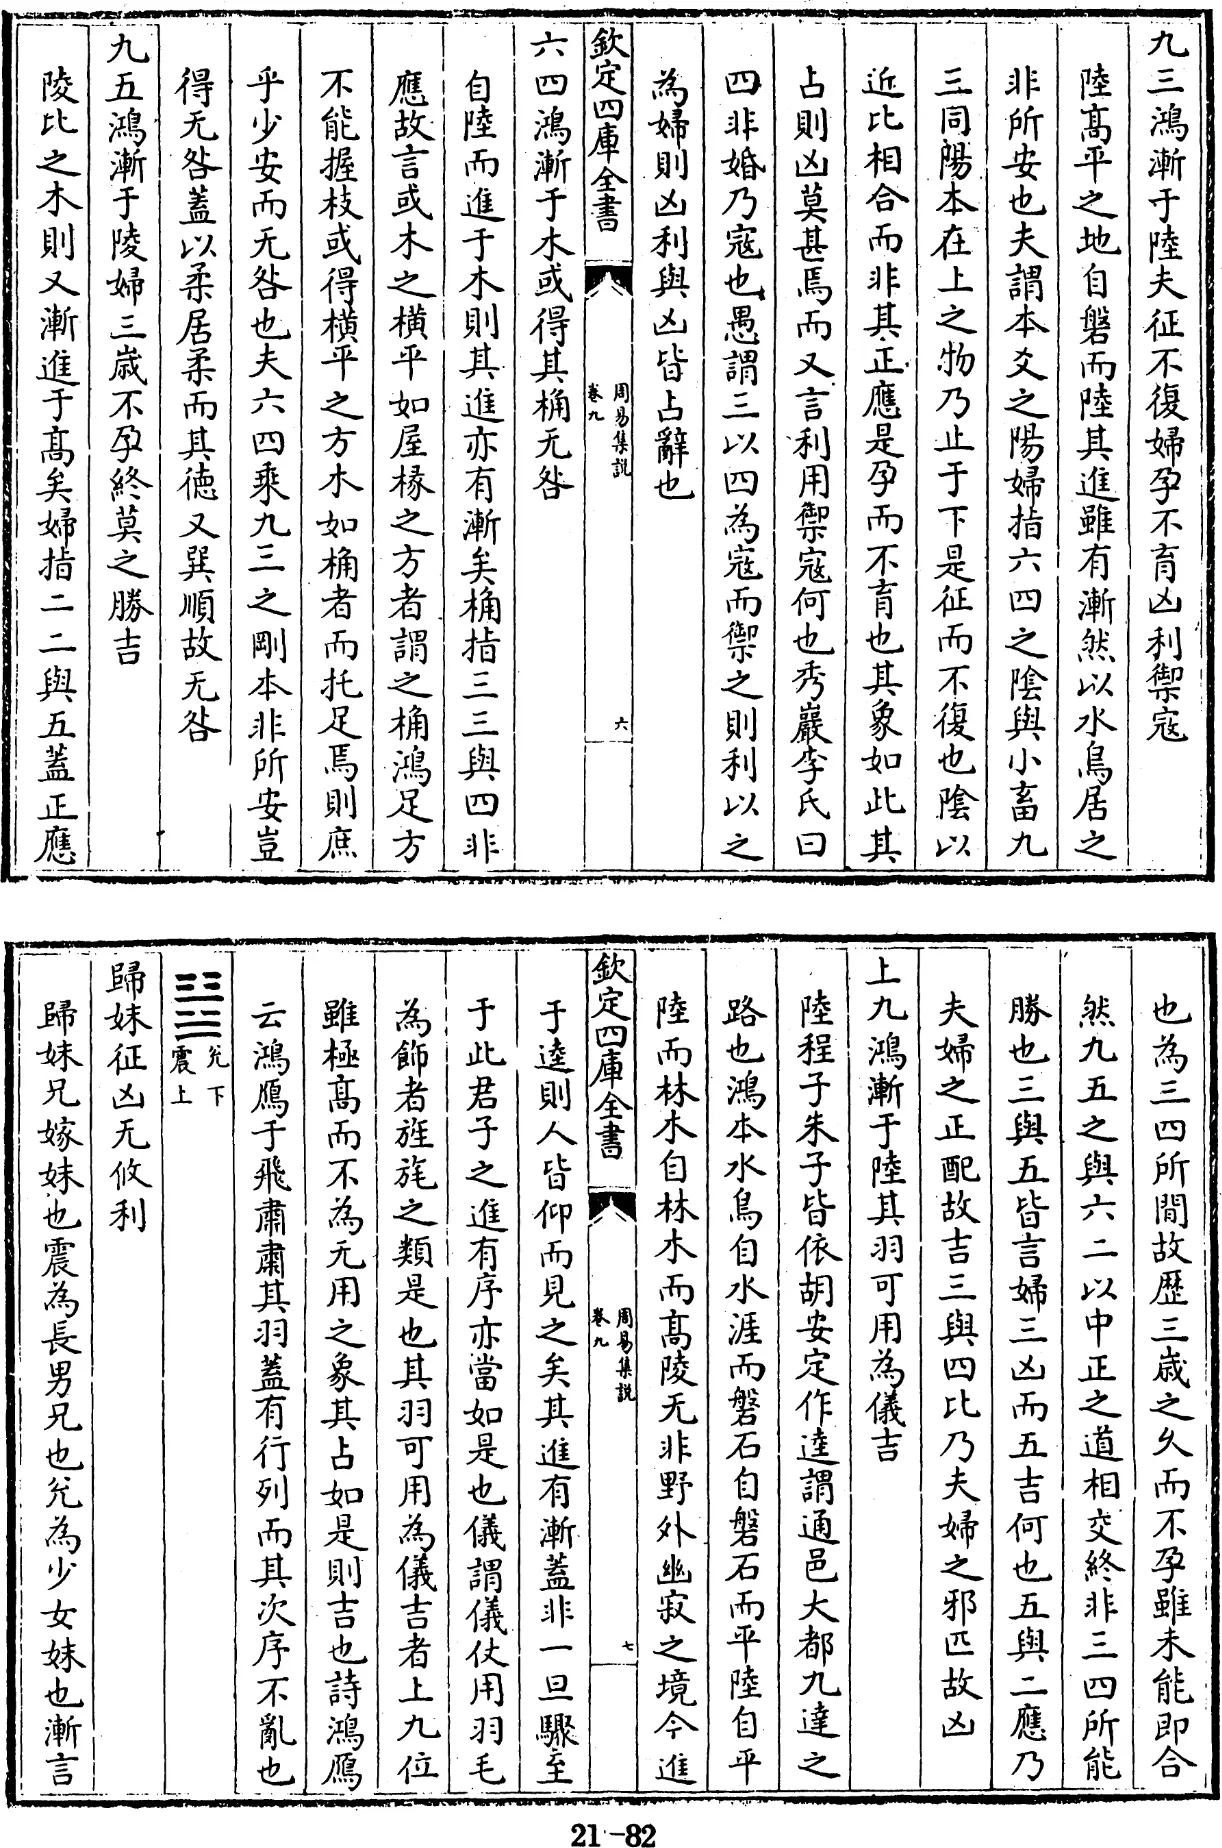 九三鴻漸于陸夫征不復婦孕不育凶利禦寇
陸髙平之地自磐而陸其進雖有漸然以水鳥居之
非所安也夫謂本爻之陽婦指六四之陰與小畜九
三同陽本在上之物乃止于下是征而不復也陰以
近比相合而非其正應是孕而不育也其象如此其
占則凶莫甚焉而又言利用禦寇何也秀巖李氏曰
四非婚乃寇也愚謂三以四為寇而禦之則利以之
為婦則凶利與凶皆占辭也
欽定四庫全書
周易集說
卷九
六
六四鴻漸于木或得其桷无咎
自陸而進于木則其進亦有漸矣桷指三三與四非
應故言或木之横平如屋椽之方者謂之桷鴻足方
不能握枝或得横平之方木如桷者而托足焉則庶
乎少安而无咎也夫六四乘九三之剛本非所安豈
得无咎蓋以柔居柔而其徳又巽順故无咎
九五鴻漸于陵婦三嵗不孕終莫之勝吉
陵比之木則又漸進于髙矣婦指二二與五蓋正應
也為三四所間故歴三嵗之久而不孕雖未能即合
然九五之與六二以中正之道相交終非三四所能
勝也三與五皆言婦三凶而五吉何也五與二應乃
夫婦之正配故吉三與四比乃夫婦之邪匹故凶
上九鴻漸于陸其羽可用為儀吉
陸程子朱子皆依胡安定作逵謂通邑大都九達之
路也鴻本水鳥自水涯而磐石自磐石而平陸自平
陸而林木自林木而髙陵无非野外幽寂之境今進
欽定四庫全書
周易集說
卷九
七
于逵則人皆仰而見之矣其進有漸蓋非一旦驟至
于此君子之進有序亦當如是也儀謂儀仗用羽毛
為飾者旌旄之類是也其羽可用為儀吉者上九位
雖極髙而不為无用之象其占如是則吉也詩鴻鴈
云鴻鴈于飛肅肅其羽蓋有行列而其次序不亂也
䷵兊下
震上
歸妹征凶无攸利
歸妹兄嫁妹也震為長男兄也兊為少女妹也漸言
21-82